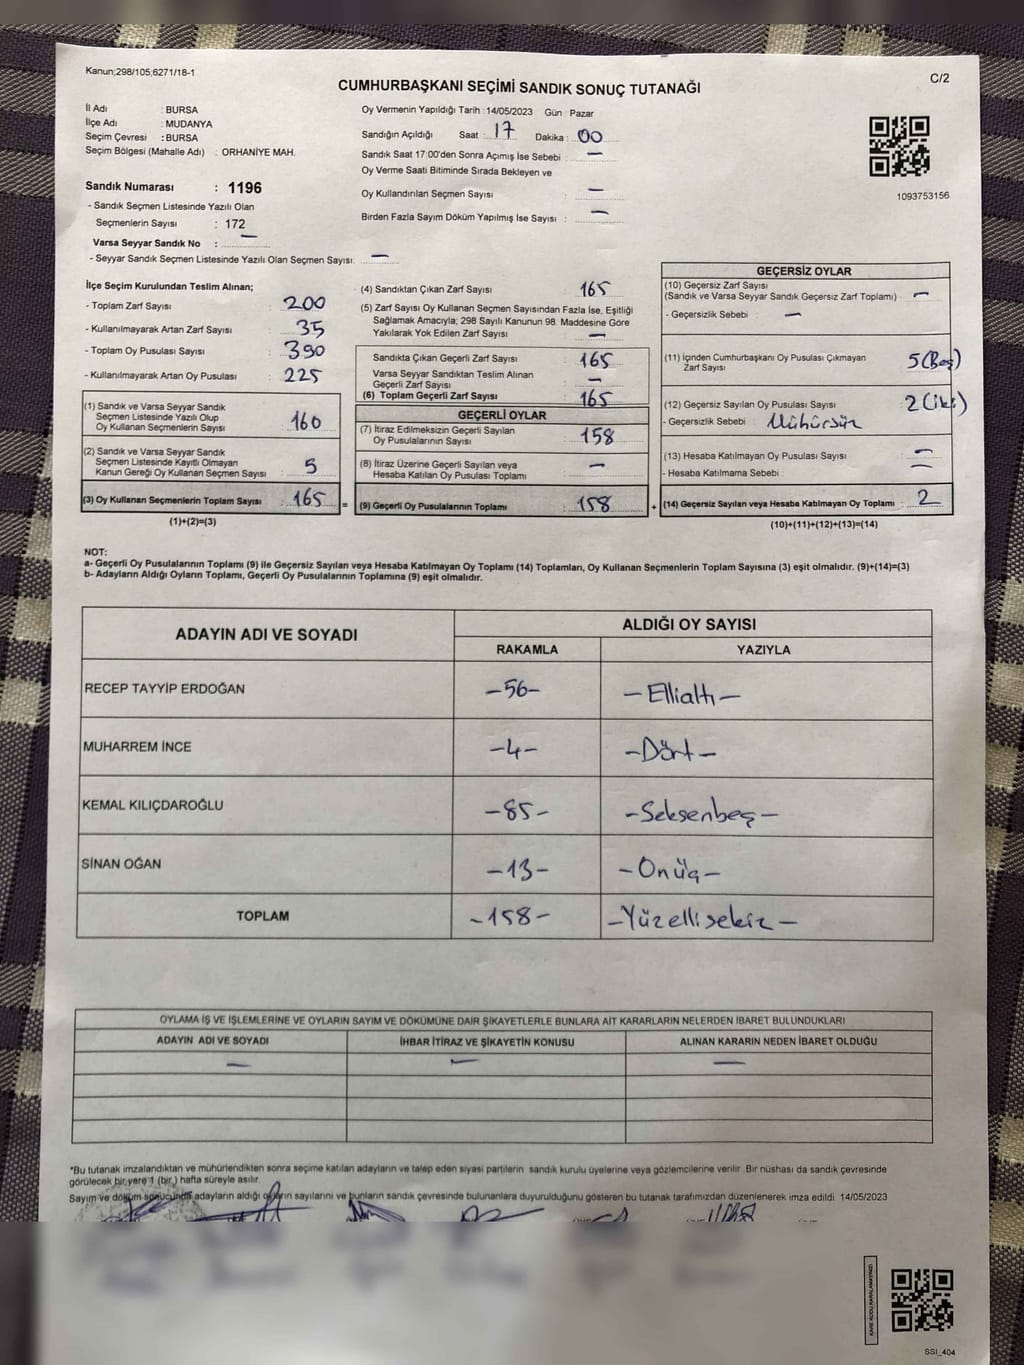 Kanun;298/105;6271/18-1
C/2
CUMHURBAŞKANI SEÇİMİ SANDIK SONUÇ TUTANAĞI
İl Adı : BURSA
İlçe Adı : MUDANYA
Seçim Çevresi : BURSA
Seçim Bölgesi (Mahalle Adı) : ORHANİYE MAH.
Sandık Numarası : 1196
- Sandık Seçmen Listesinde Yazılı Olan
Seçmenlerin Sayısı : 172
Varsa Seyyar Sandık No : —
- Seyyar Sandık Seçmen Listesinde Yazılı Olan Seçmen Sayısı: —
Oy Vermenin Yapıldığı Tarih : 14/05/2023 Gün : Pazar
Sandığın Açıldığı Saat : 17 Dakika : 00
Sandık Saat 17:00'den Sonra Açımış İse Sebebi : —
Oy Verme Saati Bitiminde Sırada Bekleyen ve
Oy Kullandırılan Seçmen Sayısı : —
Birden Fazla Sayım Döküm Yapılmış İse Sayısı : —
1093753156
İlçe Seçim Kurulundan Teslim Alınan;
- Toplam Zarf Sayısı : 200
- Kullanılmayarak Artan Zarf Sayısı : 35
- Toplam Oy Pusulası Sayısı : 390
- Kullanılmayarak Artan Oy Pusulası : 225
(1) Sandık ve Varsa Seyyar Sandık
Seçmen Listesinde Yazılı Olup
Oy Kullanan Seçmenlerin Sayısı : 160
(2) Sandık ve Varsa Seyyar Sandık
Seçmen Listesinde Kayıtlı Olmayan
Kanun Gereği Oy Kullanan Seçmen Sayısı : 5
(3) Oy Kullanan Seçmenlerin Toplam Sayısı : 165 =
(1)+(2)=(3)
(4) Sandıktan Çıkan Zarf Sayısı : 165
(5) Zarf Sayısı Oy Kullanan Seçmen Sayısından Fazla İse, Eşitliği
Sağlamak Amacıyla; 298 Sayılı Kanunun 98. Maddesine Göre
Yakılarak Yok Edilen Zarf Sayısı : —
Sandıkta Çıkan Geçerli Zarf Sayısı : 165
Varsa Seyyar Sandıktan Teslim Alınan
Geçerli Zarf Sayısı : —
(6) Toplam Geçerli Zarf Sayısı : 165
GEÇERLİ OYLAR
(7) İtiraz Edilmeksizin Geçerli Sayılan
Oy Pusulalarının Sayısı : 158
(8) İtiraz Üzerine Geçerli Sayılan veya
Hesaba Katılan Oy Pusulası Toplamı : —
(9) Geçerli Oy Pusulalarının Toplamı : 158 +
GEÇERSİZ OYLAR
(10) Geçersiz Zarf Sayısı
(Sandık ve Varsa Seyyar Sandık Geçersiz Zarf Toplamı) : —
- Geçersizlik Sebebi : —
(11) İçinden Cumhurbaşkanı Oy Pusulası Çıkmayan
Zarf Sayısı : 5 (Beş)
(12) Geçersiz Sayılan Oy Pusulası Sayısı : 2 (iki)
- Geçersizlik Sebebi : Mühürsüz
(13) Hesaba Katılmayan Oy Pusulası Sayısı : —
- Hesaba Katılmama Sebebi : —
(14) Geçersiz Sayılan veya Hesaba Katılmayan Oy Toplamı : 2
(10)+(11)+(12)+(13)=(14)
NOT:
a- Geçerli Oy Pusulalarının Toplamı (9) ile Geçersiz Sayılan veya Hesaba Katılmayan Oy Toplamı (14) Toplamları, Oy Kullanan Seçmenlerin Toplam Sayısına (3) eşit olmalıdır. (9)+(14)=(3)
b- Adayların Aldığı Oyların Toplamı, Geçerli Oy Pusulalarının Toplamına (9) eşit olmalıdır.
ADAYIN ADI VE SOYADI
ALDIĞI OY SAYISI
RAKAMLA YAZIYLA
RECEP TAYYİP ERDOĞAN -56- -Ellialtı-
MUHARREM İNCE -4- -Dört-
KEMAL KILIÇDAROĞLU -85- -Seksenbeş-
SİNAN OĞAN -13- -Onüç-
TOPLAM -158- -Yüzellisekiz-
OYLAMA İŞ VE İŞLEMLERİNE VE OYLARIN SAYIM VE DÖKÜMÜNE DAİR ŞİKAYETLERLE BUNLARA AİT KARARLARIN NELERDEN İBARET BULUNDUKLARI
ADAYIN ADI VE SOYADI İHBAR İTİRAZ VE ŞİKAYETİN KONUSU ALINAN KARARIN NEDEN İBARET OLDUĞU
— — —
*Bu tutanak imzalandıktan ve mühürlendikten sonra seçime katılan adayların ve talep eden siyasi partilerin sandık kurulu üyelerine veya gözlemcilerine verilir. Bir nüshası da sandık çevresinde
görülecek bir yere 1 (bir) hafta süreyle asılır.
Sayım ve döküm sonucunda adayların aldığı oyların sayılarını ve bunların sandık çevresinde bulunanlara duyurulduğunu gösteren bu tutanak tarafımızdan düzenlenerek imza edildi. 14/05/2023
KARE KODU KARALAMAYINIZ!
SSI_404